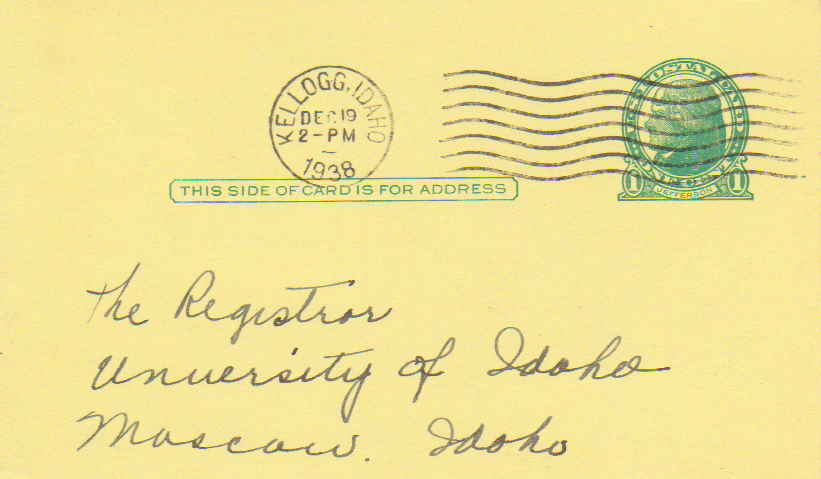 KELLOGG, IDAHO
DEC 19
2-PM
1938
U.S. POSTAL CARD
ONE CENT
1 JEFFERSON 1
THIS SIDE OF CARD IS FOR ADDRESS
The Registrar
University of Idaho
Moscow. Idaho